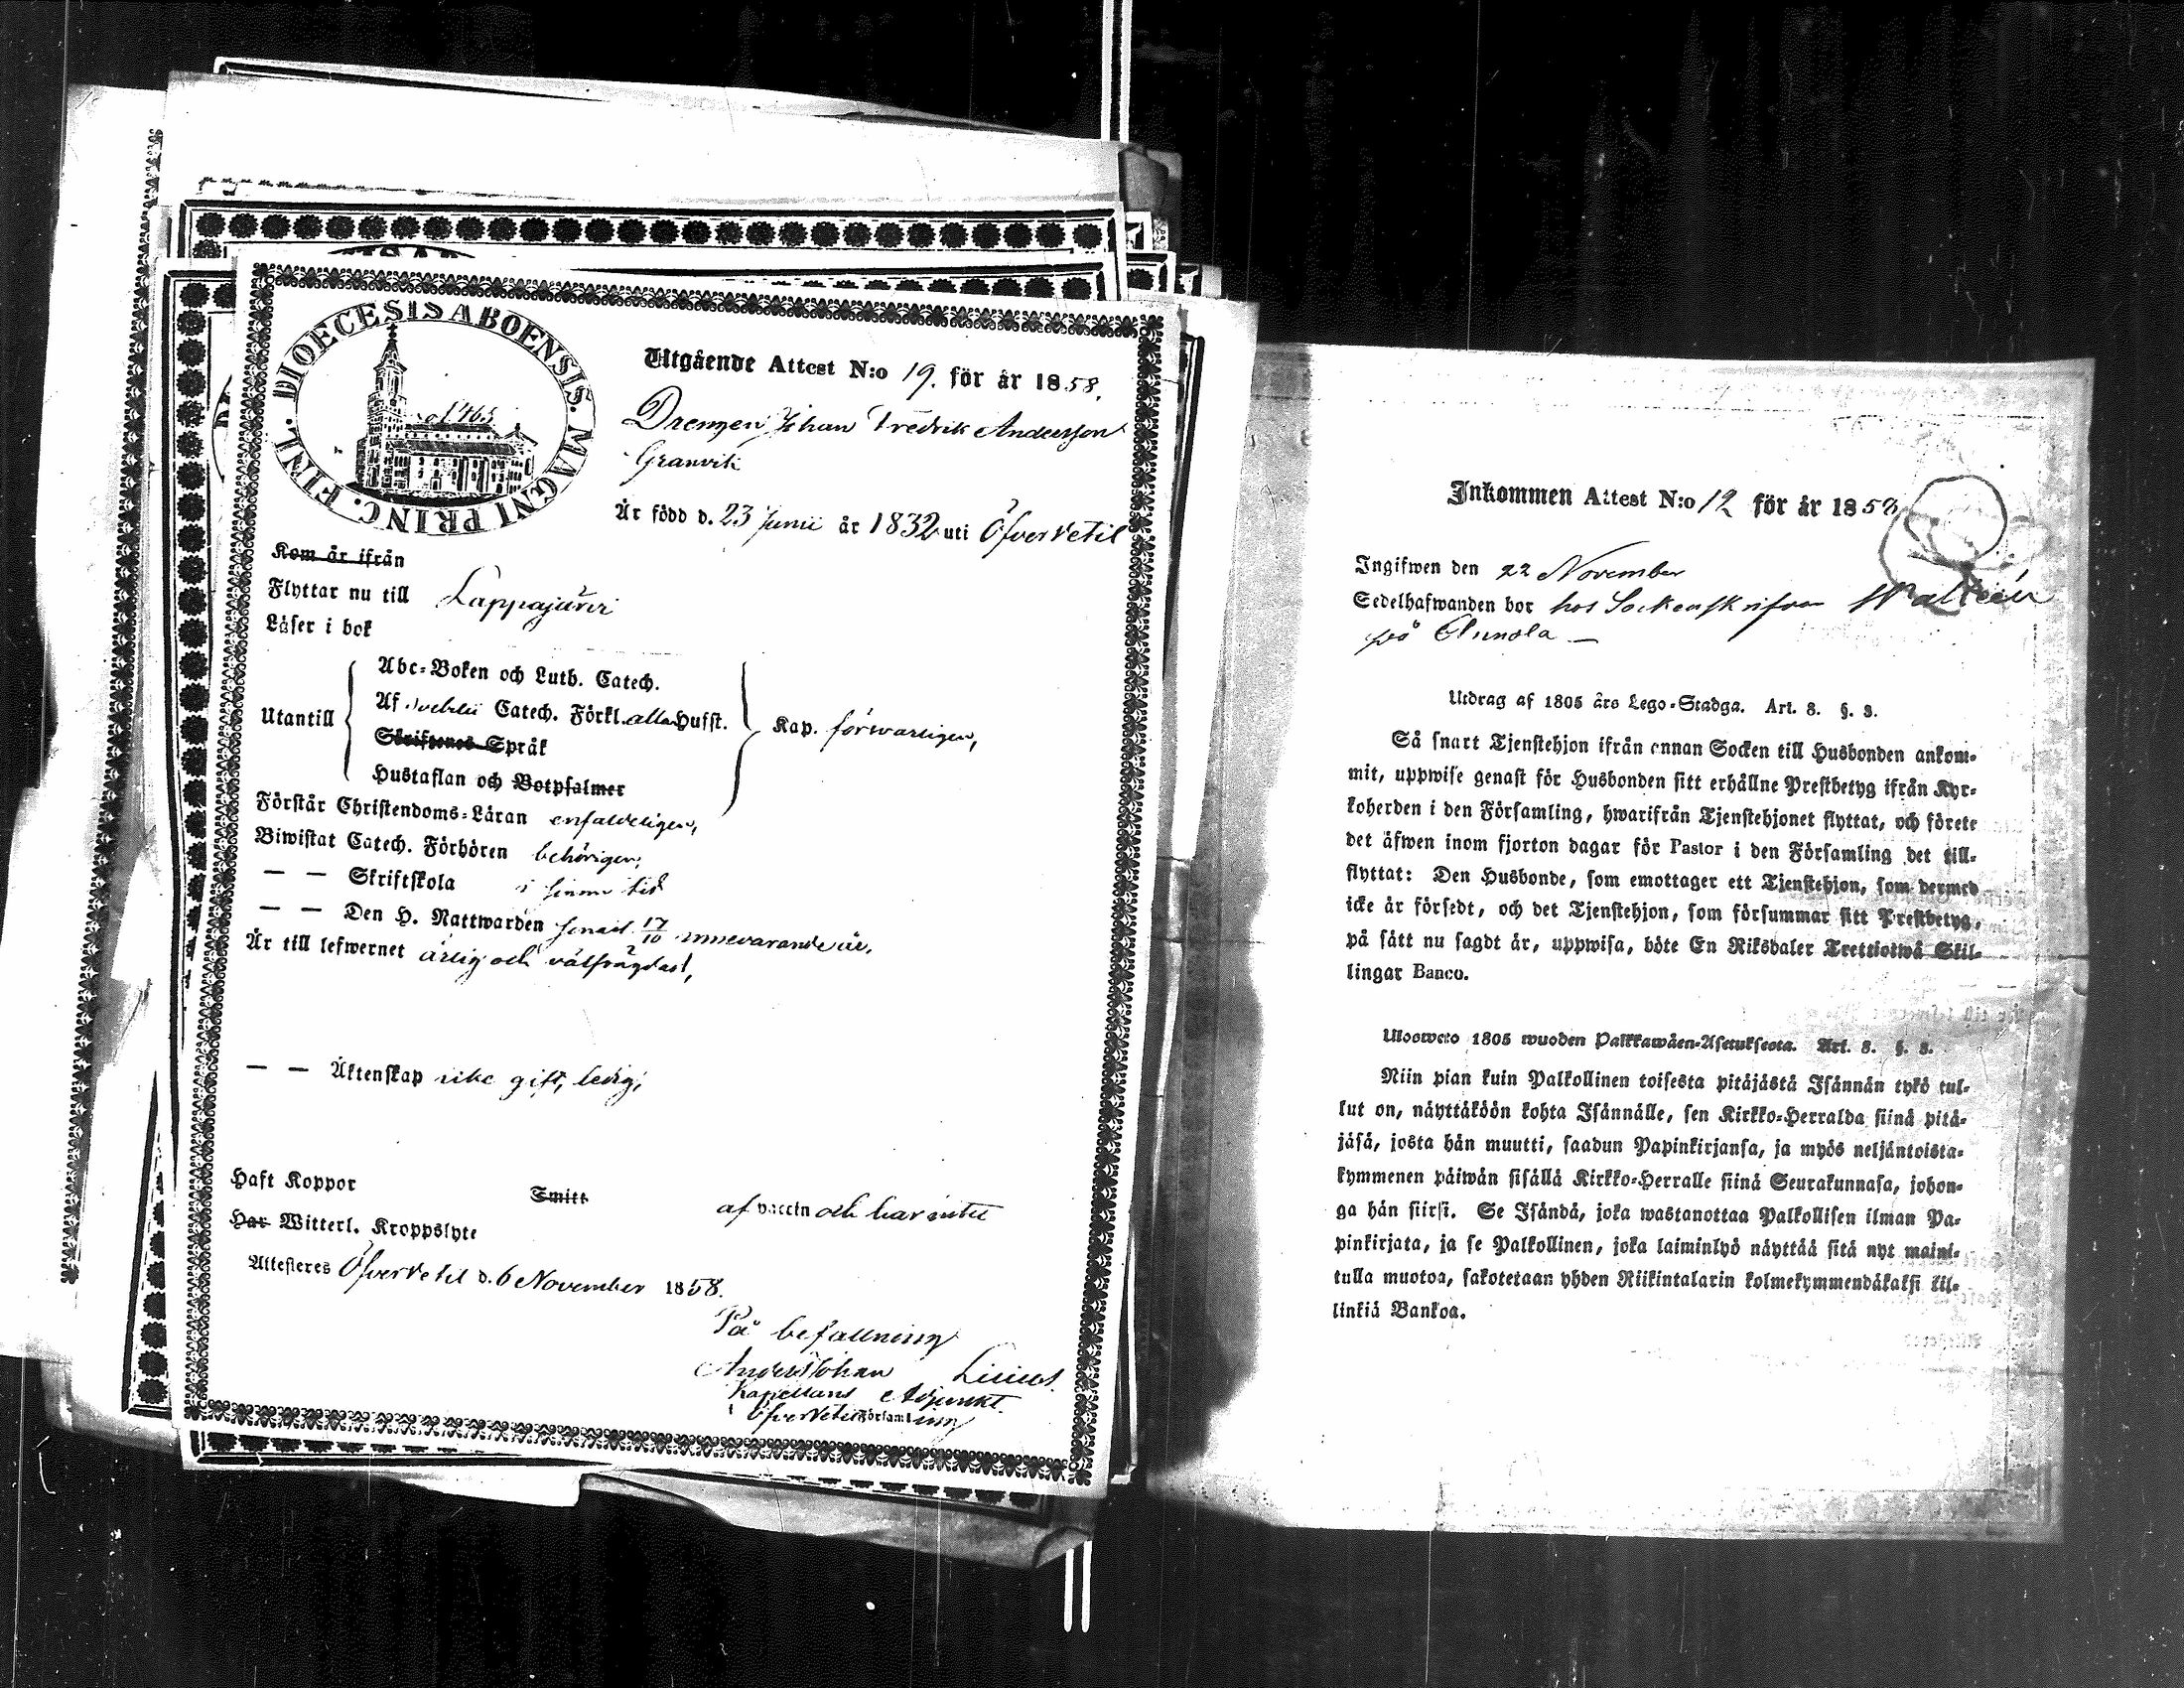 DIOECESIS ABOENSIS. MAGNI PRINC. FINL.
Utgående Attest N:o 19. för år 1858.
Drengen Johan Fredrik Andersson
Granvik
Är född d. 23 Junii år 1832 uti Öfvervetil
Kom år ifrån
Flyttar nu till Lappajärvi
Läser i bok
Abc-Boken och Luth. Catech.
Utantill Af Catech. Förkl. alla Hufst. Kap. försvarligen,
Skriftenes Språk
Hustaflan och Botpsalmer
Förstår Christendoms-Läran enfaldeligen,
Biwistat Catech. Förhören behörigen,
— — Skriftskola i sinom tid
— — Den H. Nattwarden senast 17/10 innevarande år,
Är till lefwernet ärlig och välfrägdad,
— — Äktenskap icke gift, ledig,
Haft Koppor Smitt af vaccin och har intet
Har Witterl. Kroppslyte
Attesteres Öfvervetil d. 6 November 1858.
På befallning
Anders Johan
Kapellans Adjunkt
i Öfvervetil Församling
Inkommen Attest N:o 12 för år 1858
Ingifwen den 22 November
Sedelhafwanden bor hos Sockenskrifvar
på Annola —
Utdrag af 1805 års Lego-Stadga. Art. 8. §. 3.
Så snart Tjenstehjon ifrån annan Socken till Husbonden ankom-
mit, uppwise genast för Husbonden sitt erhållne Prestbetyg ifrån Kyr-
koherden i den Församling, hwarifrån Tjenstehjonet flyttat, och förete
det äfwen inom fjorton dagar för Pastor i den Församling det till-
flyttat: Den Husbonde, som emottager ett Tjenstehjon, som dermed
icke är försedt, och det Tjenstehjon, som försummar sitt Prestbetyg,
på sätt nu sagdt är, uppwisa, böte En Riksdaler Trettiotwå Skil-
lingar Banco.
Ulosweto 1805 wuoden Palkkawäen-Asetuksesta. Art. 8. §. 3.
Niin pian kuin Palkollinen toisesta pitäjästä Isännän tykö tul-
lut on, näyttäköön kohta Isännälle, sen Kirkko-Herralda siinä pitä-
jäsä, josta hän muutti, saadun Papinkirjansa, ja myös neljäntoista-
kymmenen päiwän sisällä Kirkko-Herralle siinä Seurakunnasa, johon-
ga hän siirsi. Se Isändä, joka wastanottaa Palkollisen ilman Pa-
pinkirjata, ja se Palkollinen, joka laiminlyö näyttää sitä nyt maini-
tulla muotoa, sakotetaan yhden Riikintalarin kolmekymmendäkaksi kil-
linkiä Bankoa.